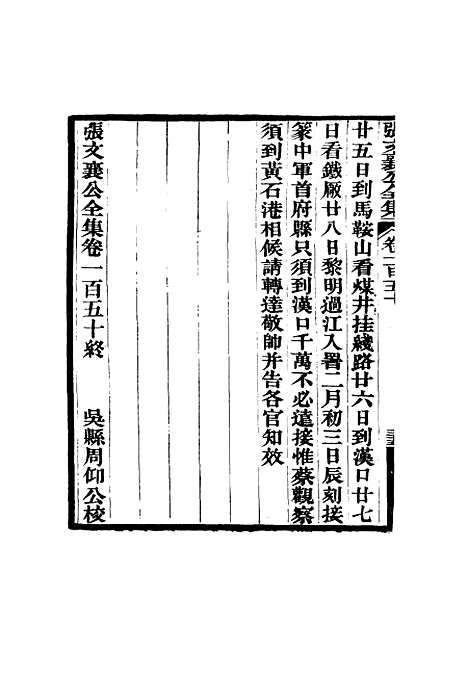 張文襄公全集 卷一百五十
廿五日到馬鞍山看煤井挂綫路廿六日到漢口廿七
日看鐵厰廿八日黎明過江入署二月初三日辰刻接
篆中軍首府縣只須到漢口千萬不必遠接惟蔡觀察
須到黃石港相候請轉達敬師并告各官知效
張文襄公全集卷一百五十終 吳縣周仰公校